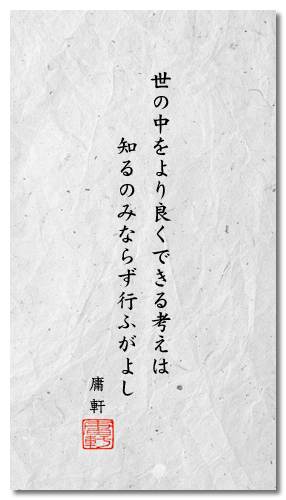 世の中をより良くできる考えは
知るのみならず行ふがよし
庸軒
庸軒